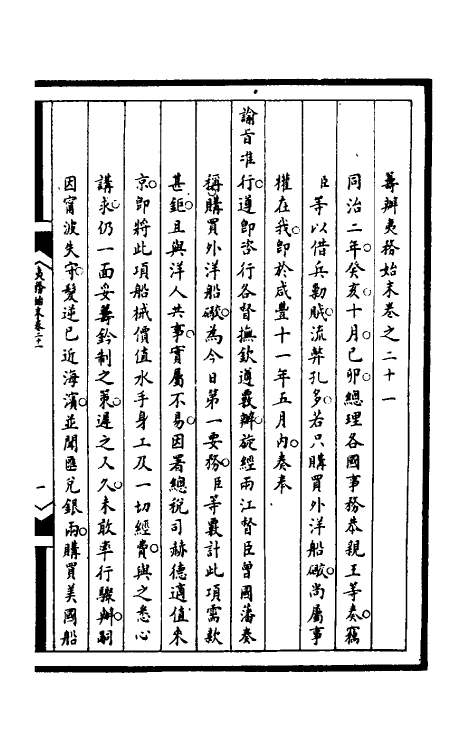 籌辦夷務始末卷之二十一
同治二年癸亥十月己卯總理各國事務恭親王等奏竊
臣等以借兵勦賊流弊孔多若只購買外洋船礮尚屬事
權在我即於咸豐十一年五月內奏奉
諭旨准行遵即咨行各督撫欽遵覈辦旋經兩江督臣曾國藩奏
稱購買外洋船礮為今日第一要務臣等覈計此項需款
甚鉅且與洋人共事實屬不易因署總稅司赫德適值來
京即將此項船械價值水手身工及一切經費與之悉心
講求仍一面妥籌鈐制之策遲之又久未敢率行驟辦嗣
因甯波失守髮逆已近海濱並聞匯兌銀兩購買美國船
夷務始末卷二十一
一